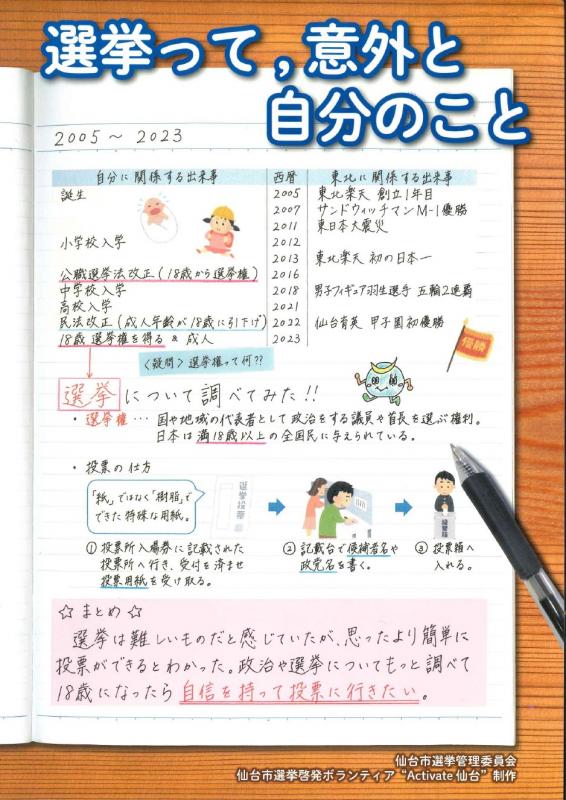 選挙って，意外と
自分のこと
2005～2023
自分に関係する出来事 西暦 東北に関係する出来事
誕生 2005 東北楽天 創立1年目
2007 サンドウィッチマンM-1優勝
2011 東日本大震災
小学校入学 2012
2013 東北楽天 初の日本一
公職選挙法改正(18歳から選挙権) 2016
中学校入学 2018 男子フィギュア羽生選手 五輪2連覇
高校入学 2021
民法改正(成人年齢が18歳に引下げ) 2022 仙台育英 甲子園初優勝
18歳 選挙権を得る & 成人 2023
優勝
〈疑問〉選挙権って何??
選挙について調べてみた!!
・選挙権… 国や地域の代表者として政治をする議員や首長を選ぶ権利。
日本は満18歳以上の全国民に与えられている。
・投票の仕方
「紙」ではなく「樹脂」で
できた特殊な用紙。
選挙投票
投票箱
① 投票所入場券に記載された
投票所へ行き、受付を済ませ
投票用紙を受け取る。
② 記載台で候補者名や
政党名を書く。
③ 投票箱へ
入れる。
☆まとめ☆
選挙は難しいものだと感じていたが、思ったより簡単に
投票ができるとわかった。政治や選挙についてもっと調べて
18歳になったら自信を持って投票に行きたい。
仙台市選挙管理委員会
仙台市選挙啓発ボランティア“Activate 仙台”制作